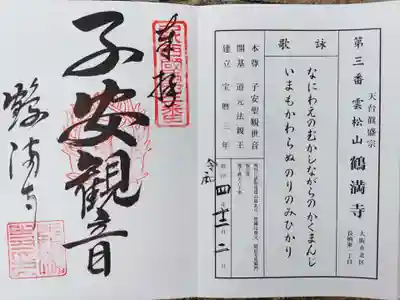 天台眞盛宗
第三番 雲松山 鶴満寺
大阪市北区
長柄東一丁目
詠歌
なにわえのむかしながらのかくまんじ
いまもかわらぬのりのみひかり
本尊 子安聖観世音
開基 道元法親王
建立 宝暦三年
令和 四 十二 二
奉拝
子安観音
鶴満寺